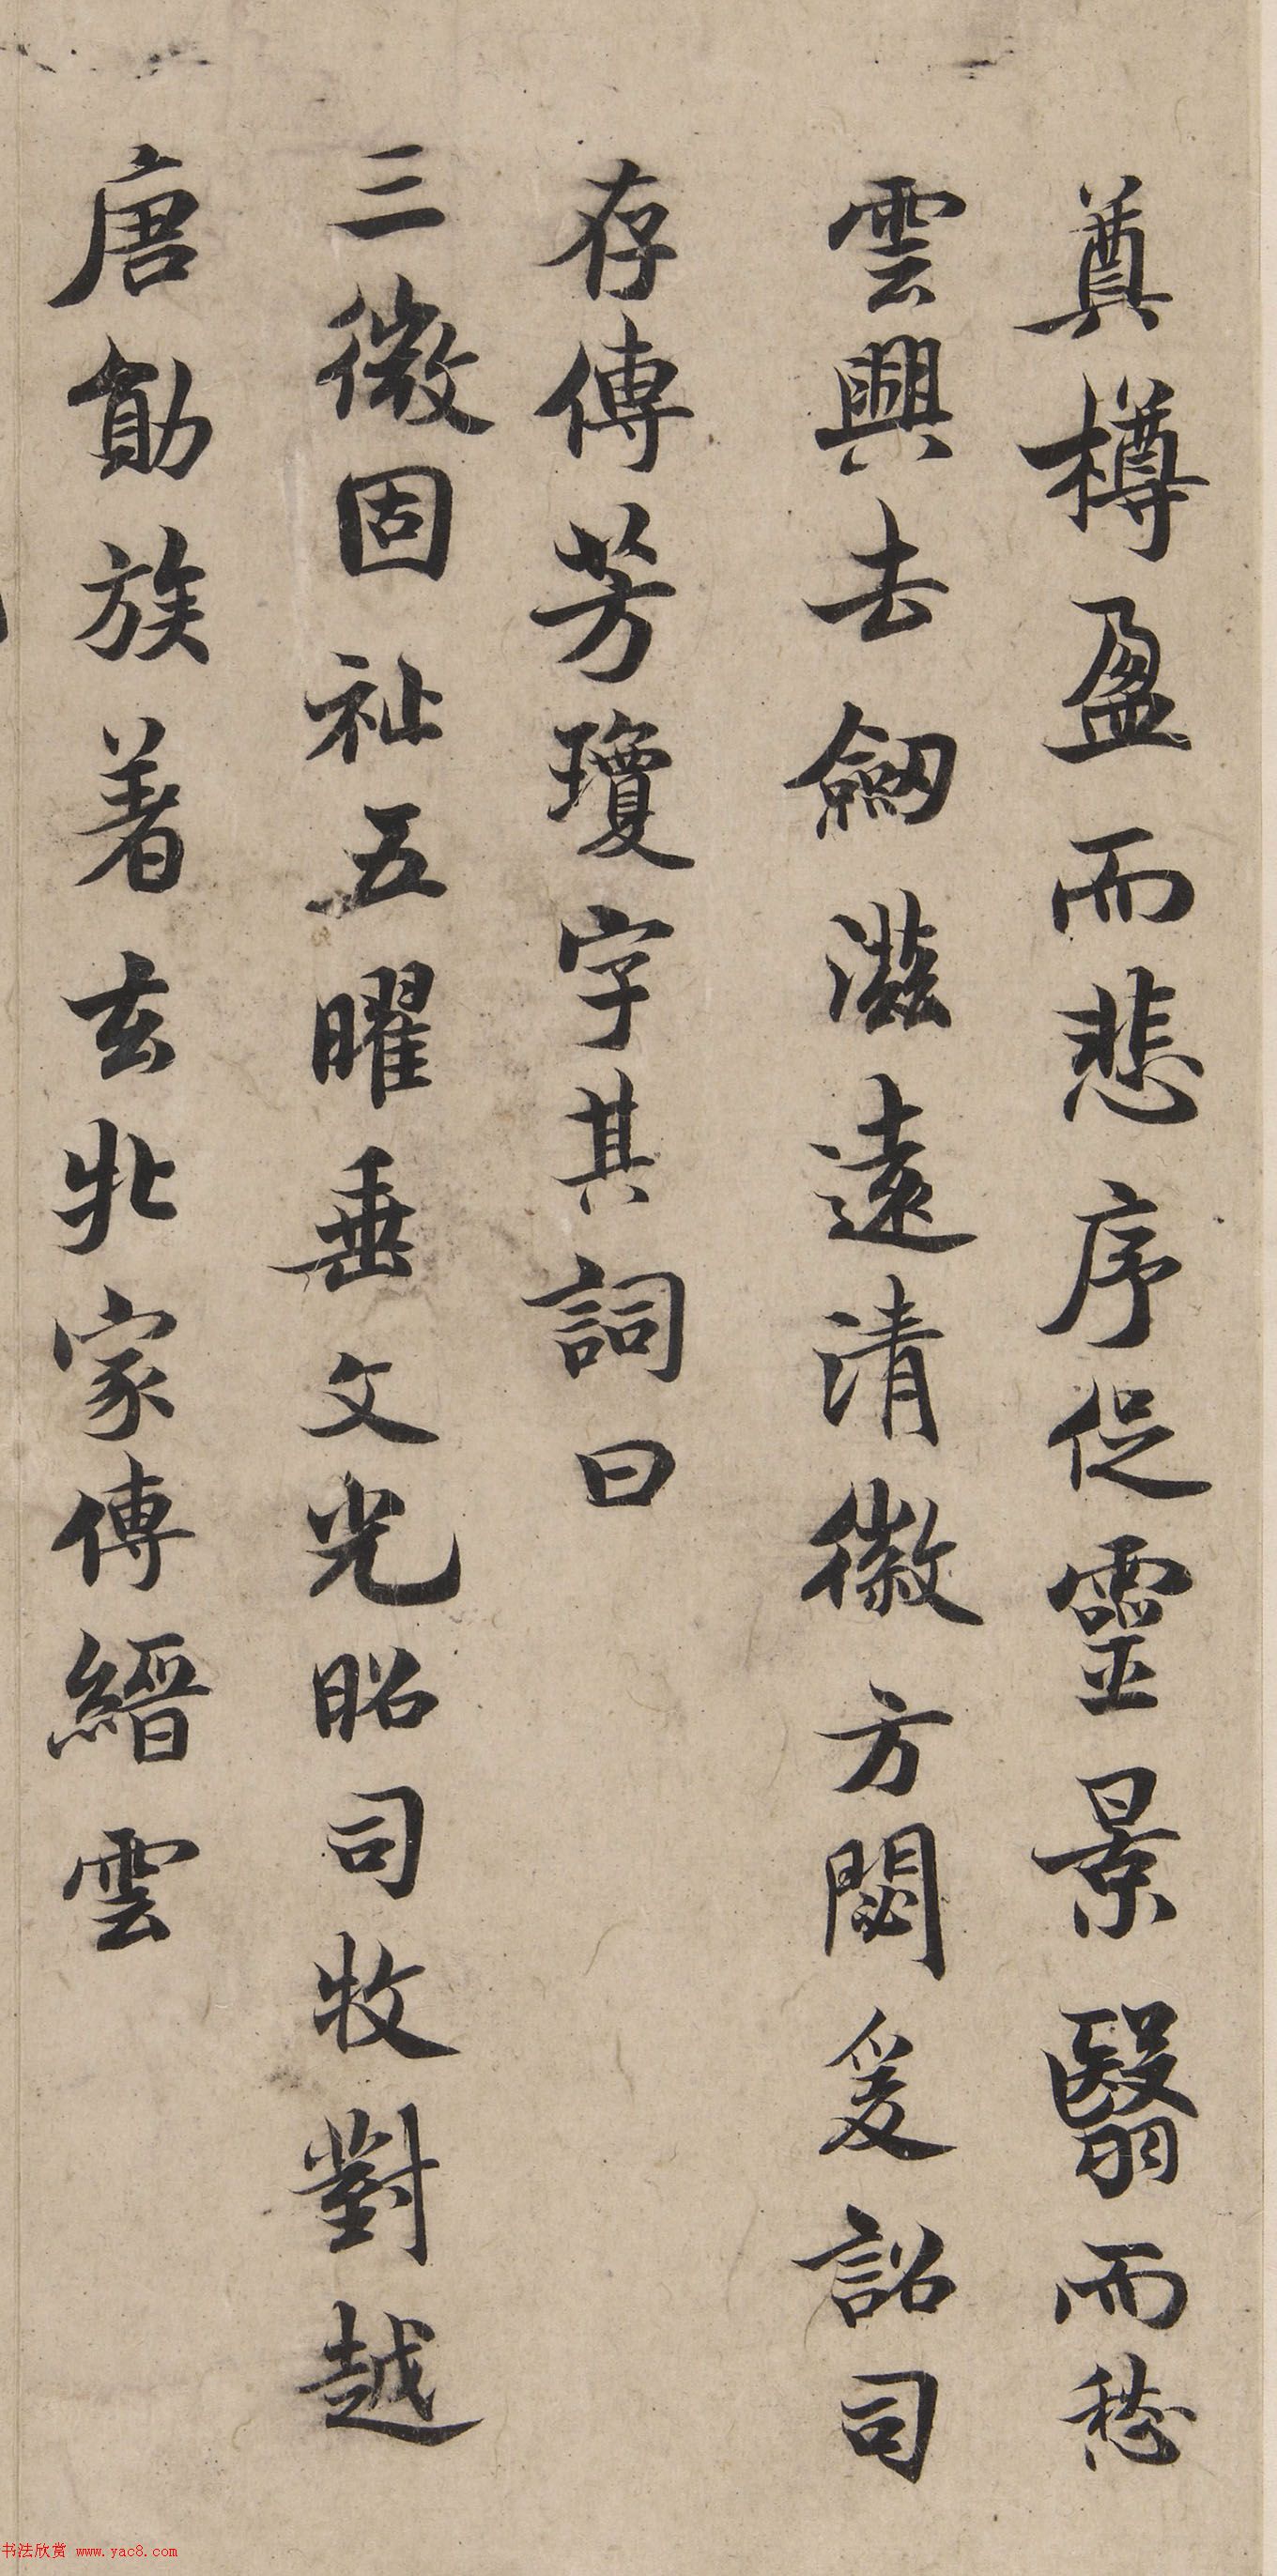 奠樽盈而悲序促靈景翳而愁
雲興去劒滋遠清徽方閟爰詔司
存傳芳瓊字其詞曰
三微固祉五曜垂文光昭司牧對越
唐勛族著玄牝家傳縉雲
书法欣赏 www.yac8.com